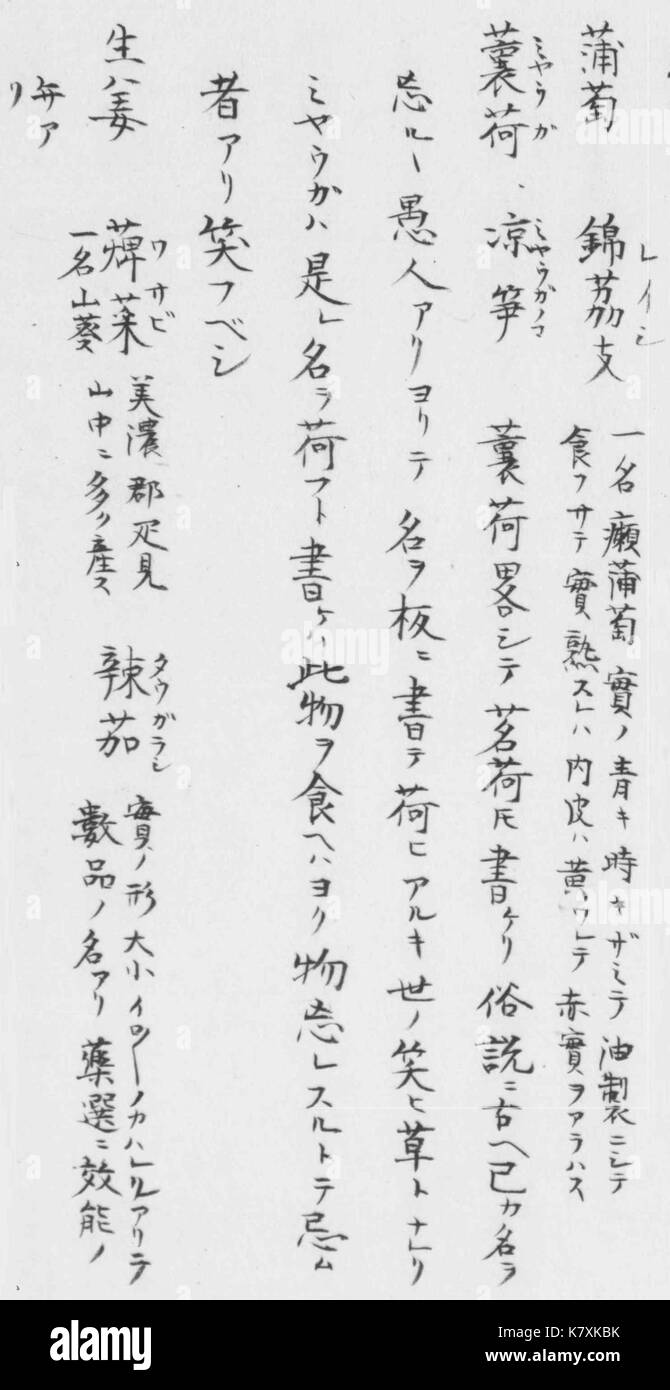 蒲萄 錦茘支 レイシ 一名癩蒲萄實ノ青キ時キザミテ油製ニシテ
食フサテ實熟スレハ内皮ハ黄ワレテ赤實ヲアラハス
蘘荷 ミヤウガ 凉笋 ミヤウガノコ 蘘荷畧シテ茗荷氏書ケリ俗説ニ古ヘ己カ名ヲ
忘ルヽ愚人アリヨリテ名ヲ板ニ書テ荷ヒアルキ世ノ笑ヒ草トナレリ
ミヤウガハ是レ名ヲ荷フト書ケハ此物ヲ食ヘハヨク物忘レスルトテ忌ム
者アリ笑フベシ
生姜 ワサビ 一名山葵 美濃郡疋見
山中ニ多ク産ス
辣茄 タウガラシ 實ノ形大小イロノカハレルアリテ
數品ノ名アリ藥選ニ效能ノ
弁ア
リ
alamy
a
alamy
Image ID: K7XKBK
www.alamy.com